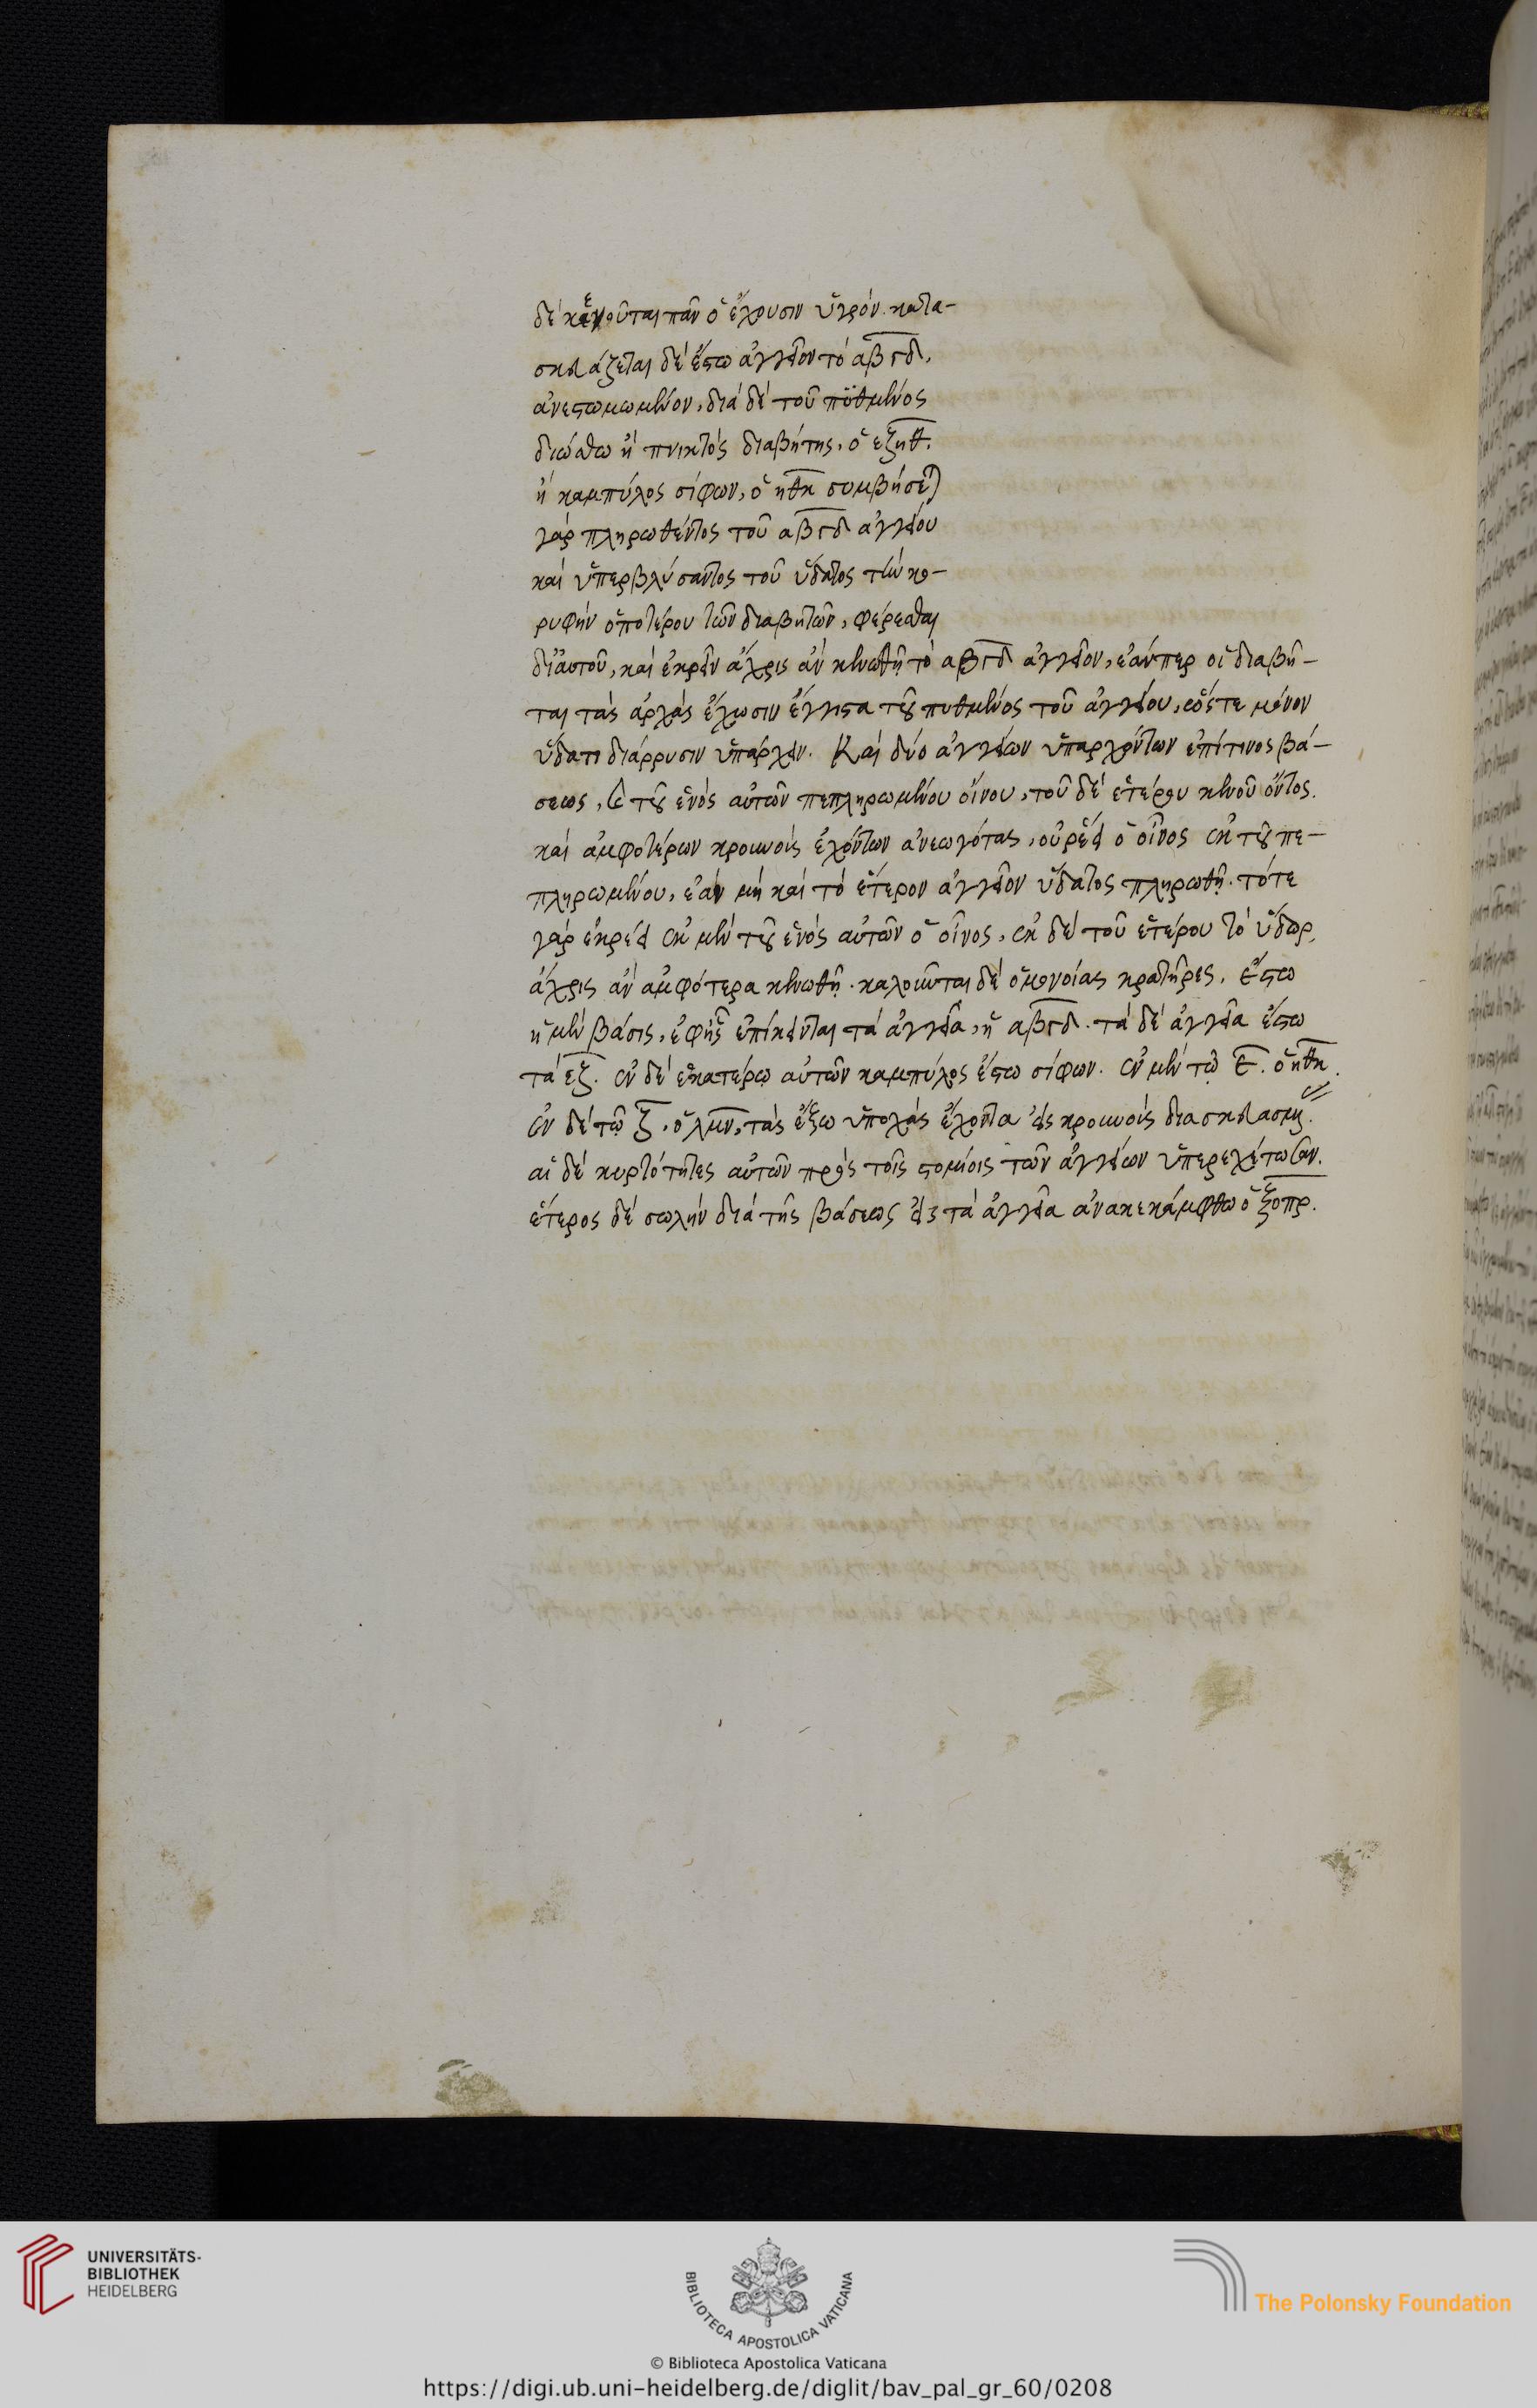 δὲ κενοῦται πᾶν ὃ ἔχουσιν ὑγρόν. κατα-
σκευάζεται δὲ ἔστω ἀγγεῖον τὸ αβγδ,
ἀνεστομωμένον, διὰ δὲ τοῦ πυθμένος
διώσθω ἢ πνικτὸς διαβήτης, ὁ εζηθ.
ἢ καμπύλος σίφων, ὁ ηθκ συμβήσεται
γὰρ πληρωθέντος τοῦ αβγδ ἀγγείου
καὶ ὑπερβλύσαντος τοῦ ὕδατος τὴν κο-
ρυφὴν ὁποτέρου τῶν διαβητῶν, φέρεσθαι
δι' αὐτοῦ, καὶ ἐκρεῖν ἄχρις ἂν κενωθῇ τὸ αβγδ ἀγγεῖον, ἐάνπερ οἱ διαβῆ-
ται τὰς ἀρχὰς ἔχωσιν ἔγγιστα τοῦ πυθμένος τοῦ ἀγγείου, ὥστε μόνον
ὕδατι διάρρυσιν ὑπάρχειν. Καὶ δύο ἀγγείων ὑπαρχόντων ἐπί τινος βά-
σεως, καὶ τοῦ ἑνὸς αὐτῶν πεπληρωμένου οἴνου, τοῦ δὲ ἑτέρου κενοῦ ὄντος.
καὶ ἀμφοτέρων κρουνοὺς ἐχόντων ἀνεωγότας, οὐ ῥέει ὁ οἶνος ἐκ τοῦ πε-
πληρωμένου, ἐὰν μὴ καὶ τὸ ἕτερον ἀγγεῖον ὕδατος πληρωθῇ. τότε
γὰρ ἐκρέει ἐκ μὲν τοῦ ἑνὸς αὐτῶν ὁ οἶνος, ἐκ δὲ τοῦ ἑτέρου τὸ ὕδωρ,
ἄχρις ἂν ἀμφότερα κενωθῇ. καλοῦνται δὲ ὁμονοίας κρατῆρες. ἔστω
ἡ μὲν βάσις, ἐφ' ἧς ἐπίκεινται τὰ ἀγγεῖα, ἡ αβγδ. τὰ δὲ ἀγγεῖα ἔστω
τὰ εζ. ἐν δὲ ἑκατέρῳ αὐτῶν καμπύλος ἔστω σίφων. ἐν μὲν τῷ ε. ὁ ηθκ.
ἐν δὲ τῷ ζ, ὁ λμν, τὰς ἔξω ὑπολὰς ἔχοντα εἰς κρουνοὺς διασκευασμῃ.
αἱ δὲ κυρτότητες αὐτῶν πρὸς τοῖς στομίοις τῶν ἀγγείων ὑπερεχέτωσαν.
ἕτερος δὲ σωλὴν διὰ τῆς βάσεως εἰς τὰ ἀγγεῖα ἀνακεκάμφθω ὁ ξοπρ.
UNIVERSITÄTS-
BIBLIOTHEK
HEIDELBERG
BIBLIOTECA APOSTOLICA VATICANA
The Polonsky Foundation
© Biblioteca Apostolica Vaticana
https://digi.ub.uni-heidelberg.de/diglit/bav_pal_gr_60/0208